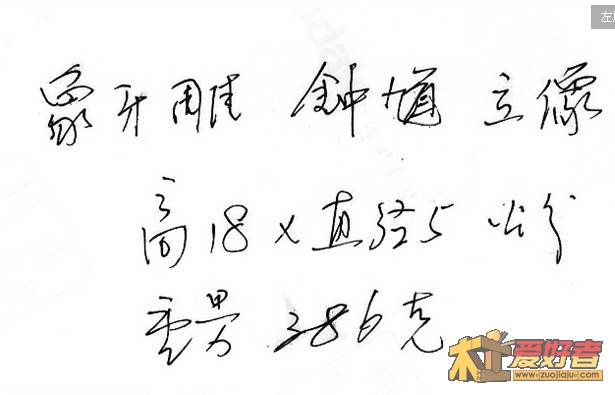 象牙雕 鈡馗 立像
高18×直径5 公分
重量 386克
木工爱好者
www.zuojiaju.com
左